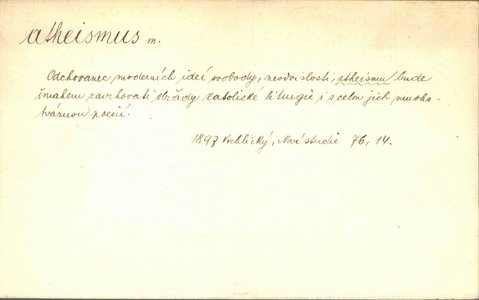 atheismus m.
Odchovanec moderních ideí svobody, neodvislosti, atheismu bude
šmahem zavrhovati obřady katolické liturgie i s celou jich mnoho-
tvárnou poesií.
1897 Vrchlický, Nov. studie 76, 14.